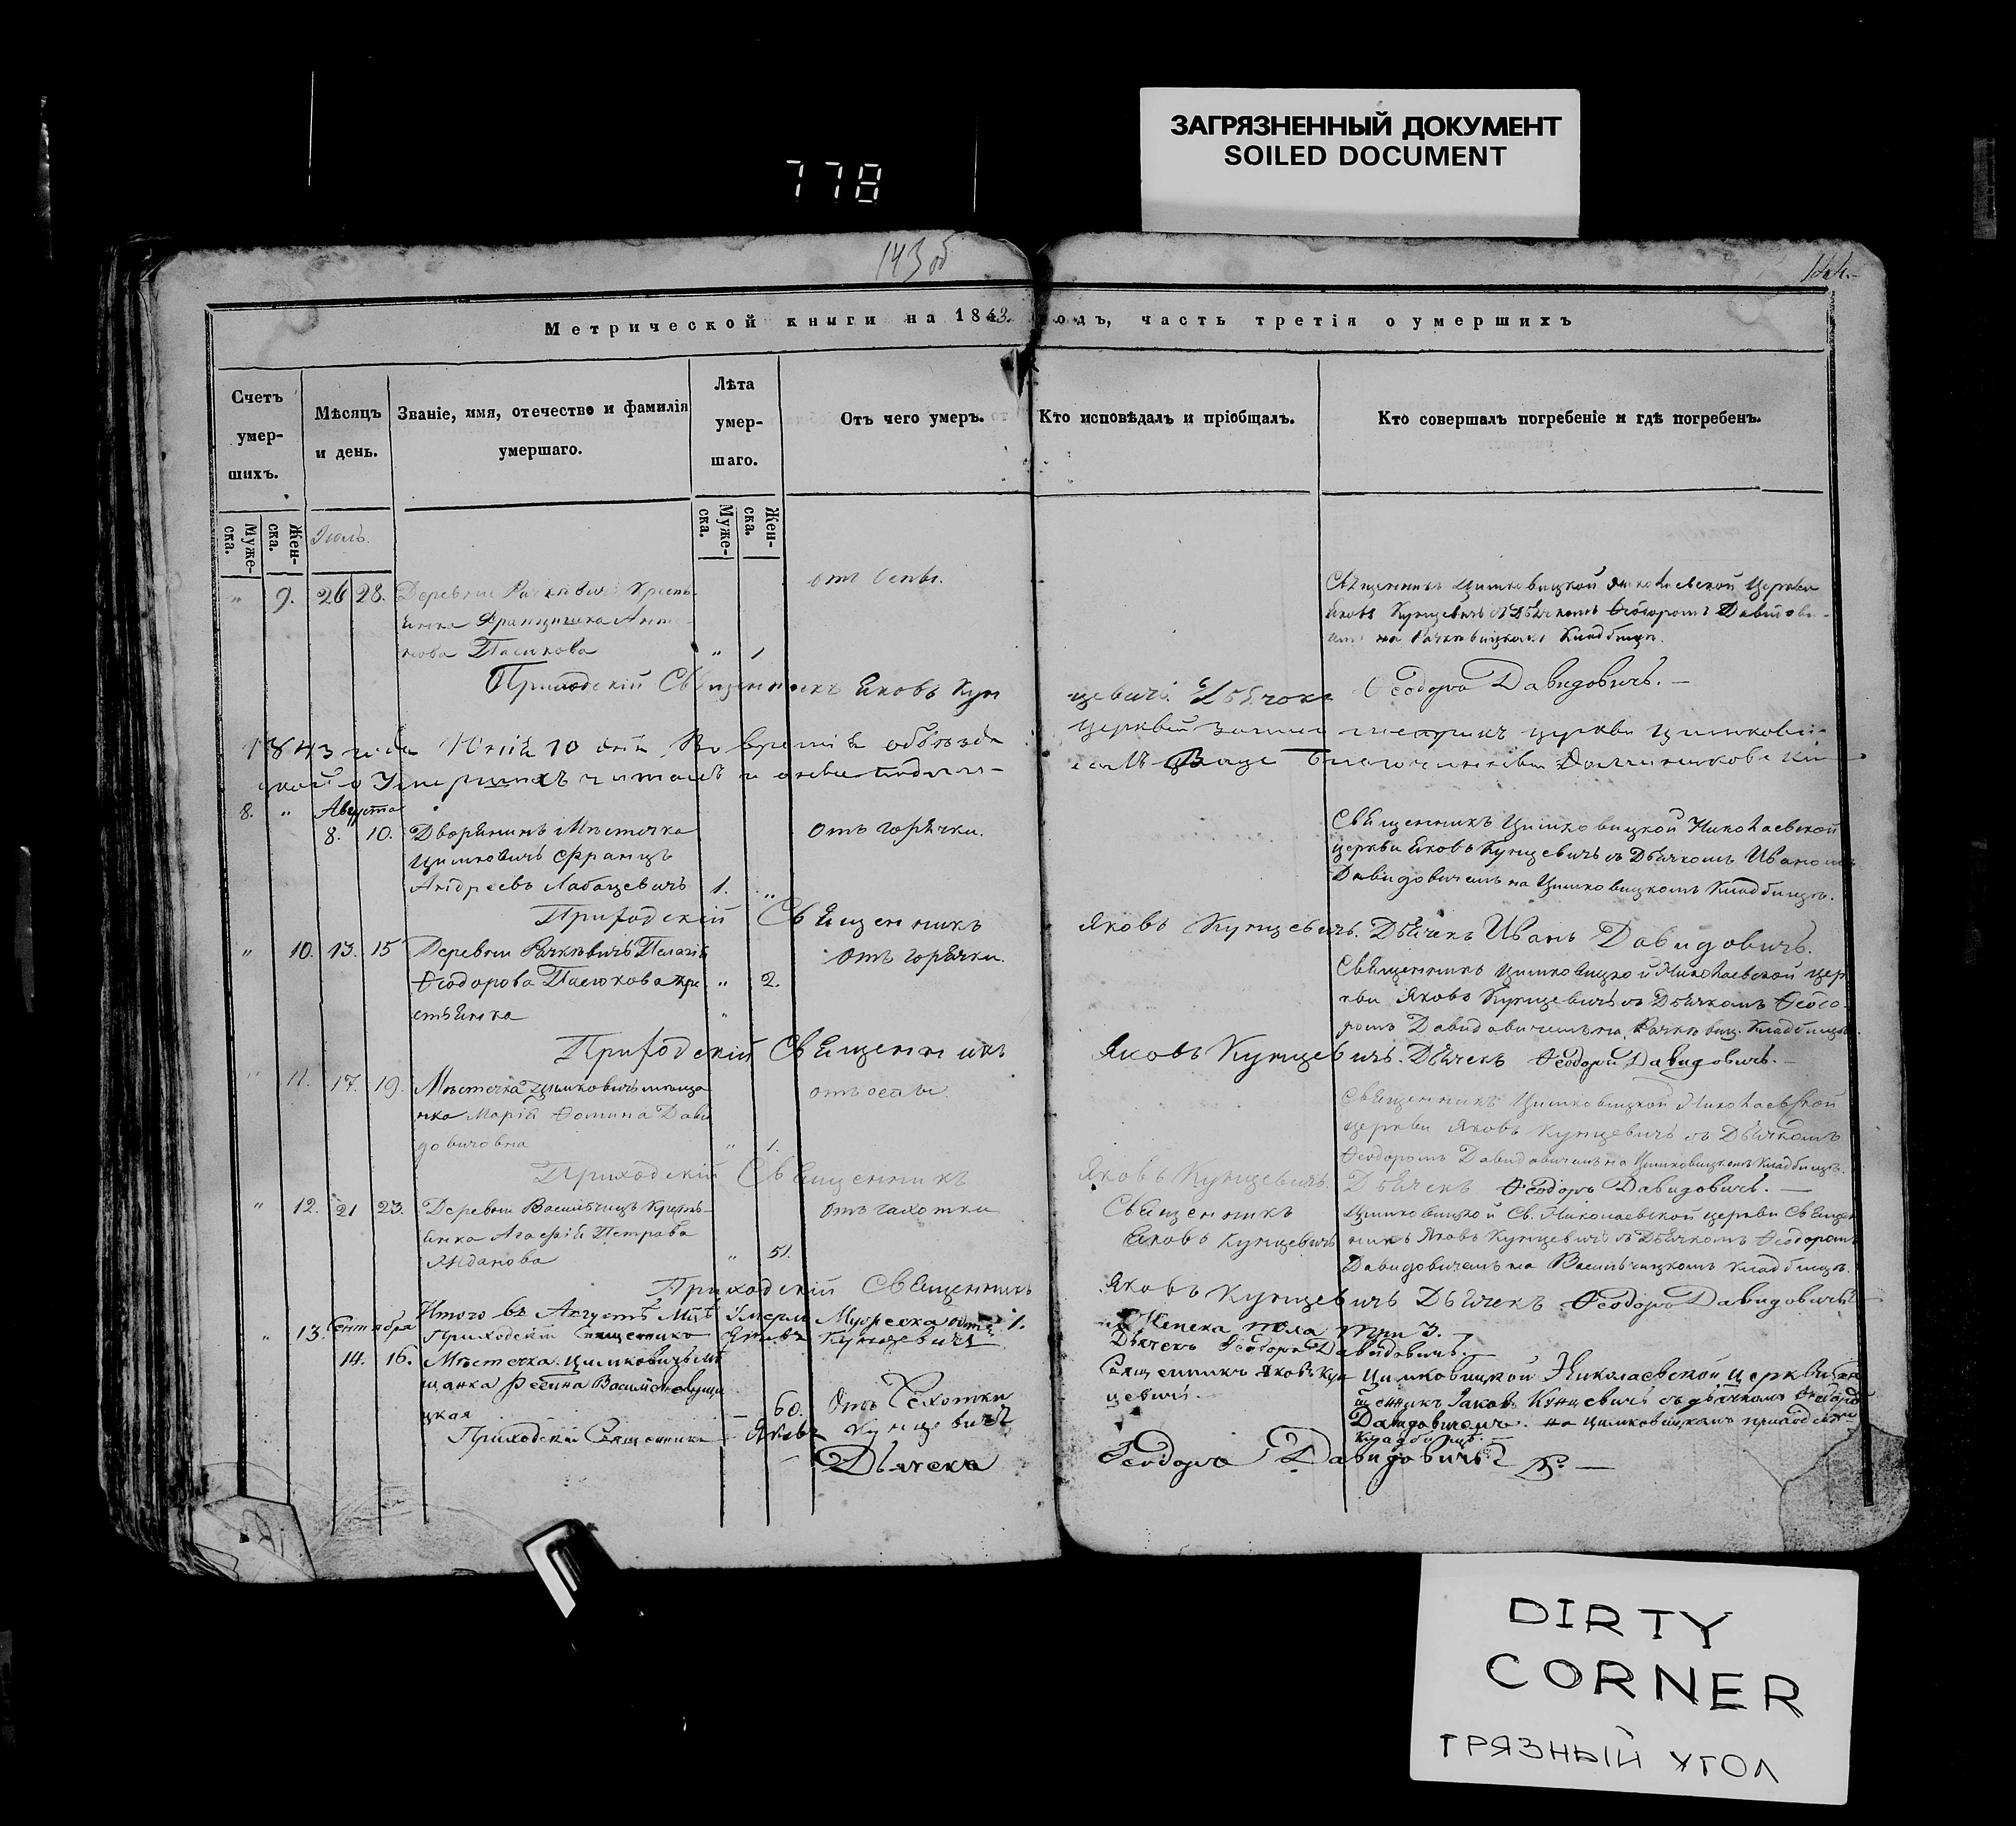 ЗАГРЯЗНЕННЫЙ ДОКУМЕНТ
SOILED DOCUMENT
778
143 об
144.
Метрической книги на 1843. годъ, часть третія о умершихъ
Счетъ умер-шихъ.
Мѣсяцъ и день.
Званіе, имя, отечество и фамилія умершаго.
Лѣта умер-шаго.
Отъ чего умеръ.
Кто исповѣдалъ и пріобщалъ.
Кто совершалъ погребеніе и гдѣ погребенъ.
Муже-ска.
Жен-ска.
Муже-ска.
Жен-ска.
Іюль.
" 9. 26 28. Деревни
отъ оспы.
Священникъ Цимковицкой Николаевской Церкви
Яковъ Кунцевичъ съ Дьячкомъ Ѳеодоромъ Давидови-
на Кладбищѣ.
" 1
Приходскій Священникъ Яковъ Кунцевичъ. Дьячокъ Ѳеодоръ Давидовичъ. —
1843 года Іюня 10 дня Во время объезда
церкви
8. " Августа
8. 10. Дворянинъ Мѣстечка
Цимковичъ Францъ
Андреевъ Лабацевичъ 1. "
отъ горячки.
Священникъ Цимковицкой Николаевской
церкви Яковъ Кунцевичъ съ Дьячкомъ Иваномъ
Давидовичемъ на Цимковицкомъ Кладбищѣ.
Приходскій Священникъ Яковъ Кунцевичъ. Дьячекъ Иванъ Давидовичъ.
" 10. 13. 15 Деревни Рачковичъ Пелагія
Ѳеодорова Пасюкова кре " 2.
стьянка "
отъ горячки.
Священникъ Цимковицкой Николаевской цер
кви Яковъ Кунцевичъ съ Дьячкомъ Ѳеодо-
ромъ Давидовичемъ на Рачковиц. Кладбищѣ.
Приходскій Священникъ Яковъ Кунцевичъ. Дьячекъ Ѳеодоръ Давидовичъ. —
" 11. 17. 19. Мѣстечка Цимковичъ мѣща
нка Марія Ѳомина Дави
довичовна " 1.
отъ оспы.
Священникъ Цимковицкой Николаевской
церкви Яковъ Кунцевичъ съ Дьячкомъ
Ѳеодоромъ Давидовичемъ на Цимковицкомъ Кладбищѣ.
Приходскій Священникъ Яковъ Кунцевичъ. Дьячекъ Ѳеодоръ Давидовичъ. —
" 12. 21 23. Деревни Василѣчицъ Кресть-
янка Агафія Петрова
Жданова " 51.
отъ чахотки
Священникъ
Яковъ Кунцевичъ
Цимковицкой Св. Николаевской церкви Священ
никъ Яковъ Кунцевичъ съ Дьячкомъ Ѳеодоромъ
Давидовичемъ на Василѣчицкомъ Кладбищѣ.
Приходскій Священникъ Яковъ Кунцевичъ Дьячекъ Ѳеодоръ Давидовичъ
Итого въ Августѣ Мцѣ умерли Мужеска 1. Женска пола три 3. —
" 13. Сентября Приходскій Священникъ Яковъ Кунцевичъ Дьячекъ Ѳеодоръ Давидовичъ. —
14. 16. Мѣстечка Цимковичъ мѣ
щанка
цкая 60.
Отъ Чехотки
Священникъ Яковъ Кун
цевичъ.
Цимковицкой Николаевской Церкви Свя
щенникъ Іаковъ Кунцевичъ съ дьячкомъ Ѳеодоро
Давидовичемъ. на Цимковицкомъ приходском
кладбищѣ. —
Приходскій Священникъ Яковъ Кунцевичъ
Дьячекъ Ѳеодоръ Давидовичъ
DIRTY
CORNER
ГРЯЗНЫЙ УГОЛ